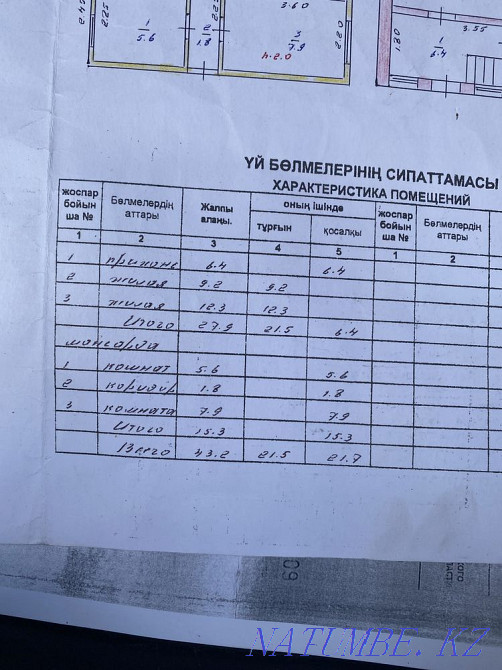 3.60
3.55
2.45
2.25
2.25
2.20
1.80
1
5.6
2
1.8
3
7.9
4.20
1
6.4
ҮЙ БӨЛМЕЛЕРІНІҢ СИПАТТАМАСЫ
ХАРАКТЕРИСТИКА ПОМЕЩЕНИЙ
жоспар бойын ша № Бөлмелердің аттары Жалпы алаңы. оның ішінде тұрғын қосалқы жоспар бойын ша № Бөлмелердің аттары
1 2 3 4 5 1 2
1 прихож 6.4 6.4
2 жилая 9.2 9.2
3 жилая 12.3 12.3
Итого 27.9 21.5 6.4
мансарда
1 комнат 5.6 5.6
2 коридор 1.8 1.8
3 комната 7.9 7.9
Итого 15.3 15.3
Всего 43.2 21.5 21.7
NATUMBE.KZ